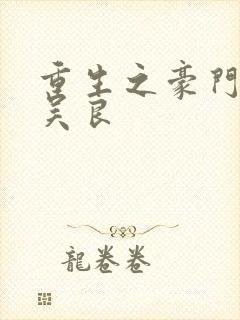 重生之豪門
吴良
龍卷卷